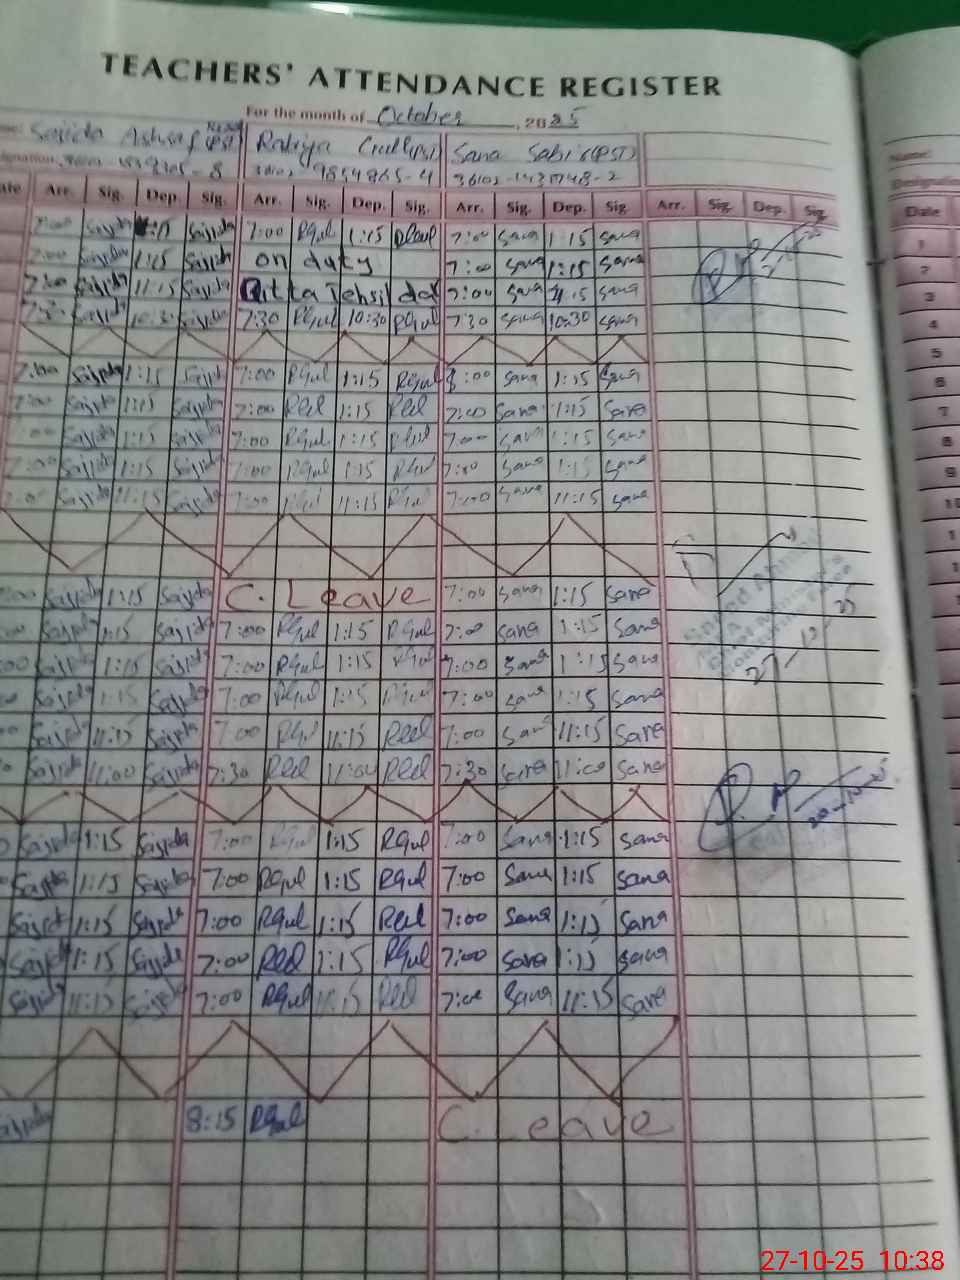 TEACHERS' ATTENDANCE REGISTER
For the month of October, 2025
Sajida Ashraf (PST) Rabiya Gull (PST) Sana Sabir (PST)
Name:
Designation
Date Arr. Sig. Dep. Sig. Arr. Sig. Dep. Sig. Arr. Sig. Dep. Sig. Arr. Sig. Dep. Sig. Date
7:00 Sajida 1:15 Sajida 7:00 RGul 1:15 RGul 7:00 Sana 1:15 Sana 1
7:00 Sajida 1:15 Sajida on duty 7:00 Sana 1:15 Sana 2
7:00 Sajida 11:15 Sajida Tehsil 7:00 Sana 11:15 Sana 3
7:30 Sajida 10:30 Sajida 7:30 RGul 10:30 RGul 7:30 Sana 10:30 Sana 4
5
7:00 Sajida 1:15 Sajida 7:00 RGul 1:15 RGul 8:00 Sana 1:15 Sana 6
7:00 Sajida 1:15 Sajida 7:00 RGul 1:15 RGul 7:00 Sana 1:15 Sana 7
7:00 Sajida 1:15 Sajida 7:00 RGul 1:15 RGul 7:00 Sana 1:15 Sana 8
7:00 Sajida 1:15 Sajida 7:00 RGul 1:15 RGul 7:00 Sana 1:15 Sana 9
7:00 Sajida 11:15 Sajida 7:00 RGul 11:15 RGul 7:00 Sana 11:15 Sana 10
7:00 Sajida 1:15 Sajida C. Leave 7:00 Sana 1:15 Sana
Sajida 1:15 Sajida 7:00 RGul 1:15 RGul 7:00 Sana 1:15 Sana
Sajida 1:15 Sajida 7:00 RGul 1:15 RGul 7:00 Sana 1:15 Sana
27-10-25
Sajida 1:15 Sajida 7:00 RGul 1:15 RGul 7:00 Sana 1:15 Sana
Sajida 11:15 Sajida 7:00 RGul 11:15 RGul 7:00 Sana 11:15 Sana
Sajida 11:00 Sajida 7:30 RGul 11:00 RGul 7:30 Sana 11:00 Sana
20-10-25
Sajida 1:15 Sajida 7:00 RGul 1:15 RGul 7:00 Sana 1:15 Sana
Sajida 1:15 Sajida 7:00 RGul 1:15 RGul 7:00 Sana 1:15 Sana
Sajida 1:15 Sajida 7:00 RGul 1:15 RGul 7:00 Sana 1:15 Sana
Sajida 1:15 Sajida 7:00 RGul 1:15 RGul 7:00 Sana 1:15 Sana
Sajida 11:15 Sajida 7:00 RGul 11:15 RGul 7:00 Sana 11:15 Sana
Sajida 8:15 RGul C. Leave
27-10-25 10:38